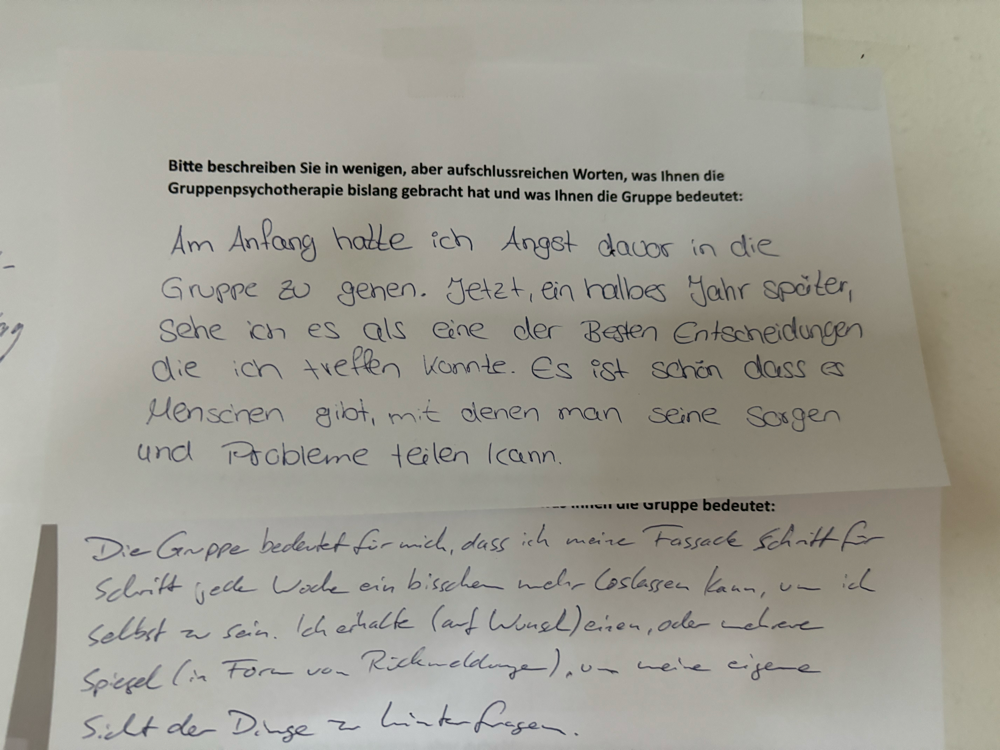 Bitte beschreiben Sie in wenigen, aber aufschlussreichen Worten, was Ihnen die
Gruppenpsychotherapie bislang gebracht hat und was Ihnen die Gruppe bedeutet:
Am Anfang hatte ich Angst davor in die
Gruppe zu gehen. Jetzt, ein halbes Jahr später,
sehe ich es als eine der Besten Entscheidungen
die ich treffen konnte. Es ist schön dass es
Menschen gibt, mit denen man seine Sorgen
und Probleme teilen kann.
Ihnen die Gruppe bedeutet:
Die Gruppe bedeutet für mich, dass ich meine Fassade Schritt für
Schritt jede Woche ein bisschen mehr loslassen kann, um ich
selbst zu sein. Ich erhalte (auf Wunsch) einen, oder mehrere
Spiegel (in Form von Rückmeldungen), um meine eigene
Sicht der Dinge zu hinterfragen.